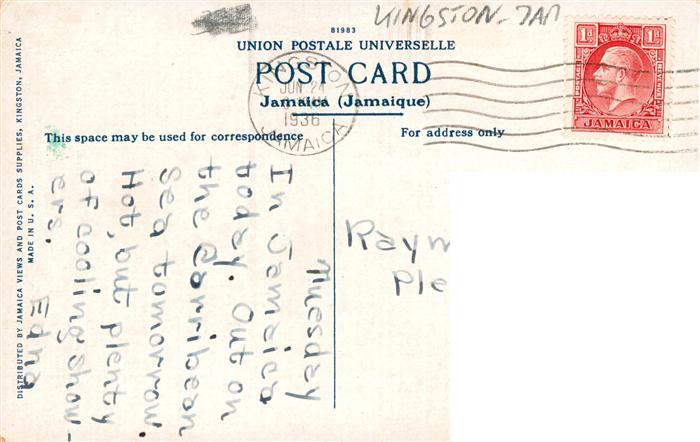 KINGSTON - JAM
81983
UNION POSTALE UNIVERSELLE
POST CARD
Jamaica (Jamaique)
This space may be used for correspondence
For address only
KINGSTON
JUN 24
1936
JAMAICA
1d 1d
POSTAGE
JAMAICA
Tuesday
In Jamaica
today. Out on
the Carribean
Sea tomorrow.
Hot, but plenty
of cooling show-
ers.
Edna
Raym
Ple
DISTRIBUTED BY JAMAICA VIEWS AND POST CARDS SUPPLIES, KINGSTON, JAMAICA
MADE IN U. S. A.